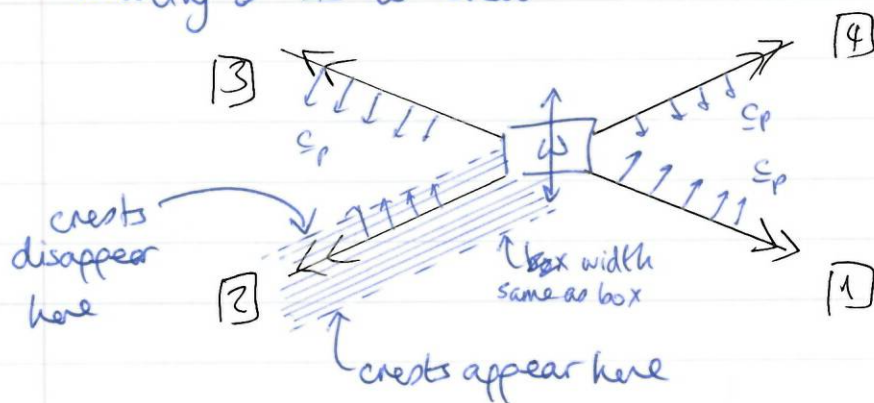 [3]
[4]
c_p
c_p
ω
c_p
crests
disappear
here
[2]
box width
same as box
[1]
crests appear here